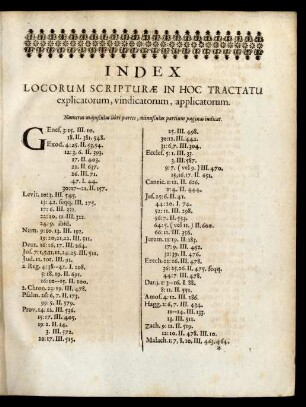 INDEX
LOCORUM SCRIPTURÆ IN HOC TRACTATU
explicatorum, vindicatorum, applicatorum.
Numerus majusculus libri partes, minusculus partium paginas indicat.
Genes. 3:15. III. 10.
18. II. 381. 548.
Exod. 4:25. II. 53.54.
12:3. 6. II. 593.
17. II. 403.
21. II. 637.
26. III. 71.
47. I. 24.
30:17--21. II. 157.
Levit. 10:3. III. 545.
13: 42. seqq. III. 275.
17: 6. III. 221.
22:10, 11. III. 312.
24:9. ibid.
Num. 9:10. 13. III. 197.
19:20, 21, 22. III. 211.
Deut. 16: 16, 17. III. 264.
Jud. 21. 10. III. 91.
2. Reg. 4:38-42. I. 108.
5:18. III. 191.
6:32. III. 621.
2. Chron. 22:19. III. 478.
Psalm. 16: 6, 7. II. 173.
99: 5. III. 579.
Prov. 14: 12. III. 536.
15: 17. III. 405.
19: 2. II. 14.
3. III. 572.
20:17. III. 515.
25. III. 498.
30:12. III. 442.
31: 6, 7. III. 304.
Eccles. 5:1. III. 33.
3. III. 587.
9: 7. ( vel 9. ) III. 470.
15, 16, 17. II. 651.
Cantic. 2: 12. II. 626.
2:4. II. 444.
Jes. 25:6. II. 41.
44: 20. I. 74.
52: 11. III. 298.
56: 7. II. 553.
64: 5. ( vel 11. ) II. 600.
66: 11. III. 256.
Jerem. 11: 19. II. 183.
17: 9. III. 452.
32: 39. II. 476.
Ezech. 21: 26. III. 478.
36: 25, 26. II. 475. seqq.
44: 7. III. 478.
Dan. 1: 3--16. I. 88.
8: 11. II. 551.
Amos. 4: 12. III. 186.
Hagg. 2: 6, 7. III. 434.
11--14. III. 137.
13. III. 511.
Zach. 9: 11. II. 519.
12: 10. II. 478. III. 10.
Malach. 1: 7, 8, 10. III. 463, 464.